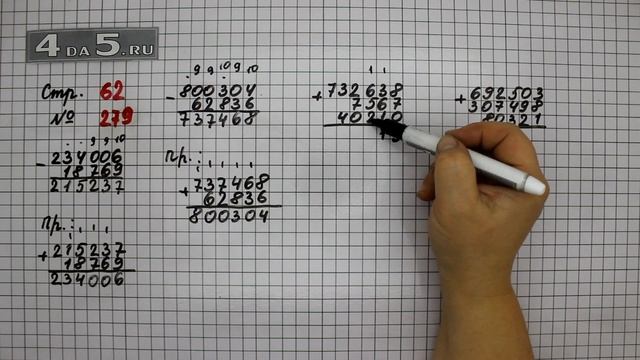 4 DA 5.RU
Стр. 62
№ 279
- 234006
18769
215237
Пр.:
+ 215237
18769
234006
9 9 10 9 10
- 800304
62836
737468
Пр.:
+ 737468
62836
800304
1 1
+ 732638
7567
40210
+ 692503
307498
80321